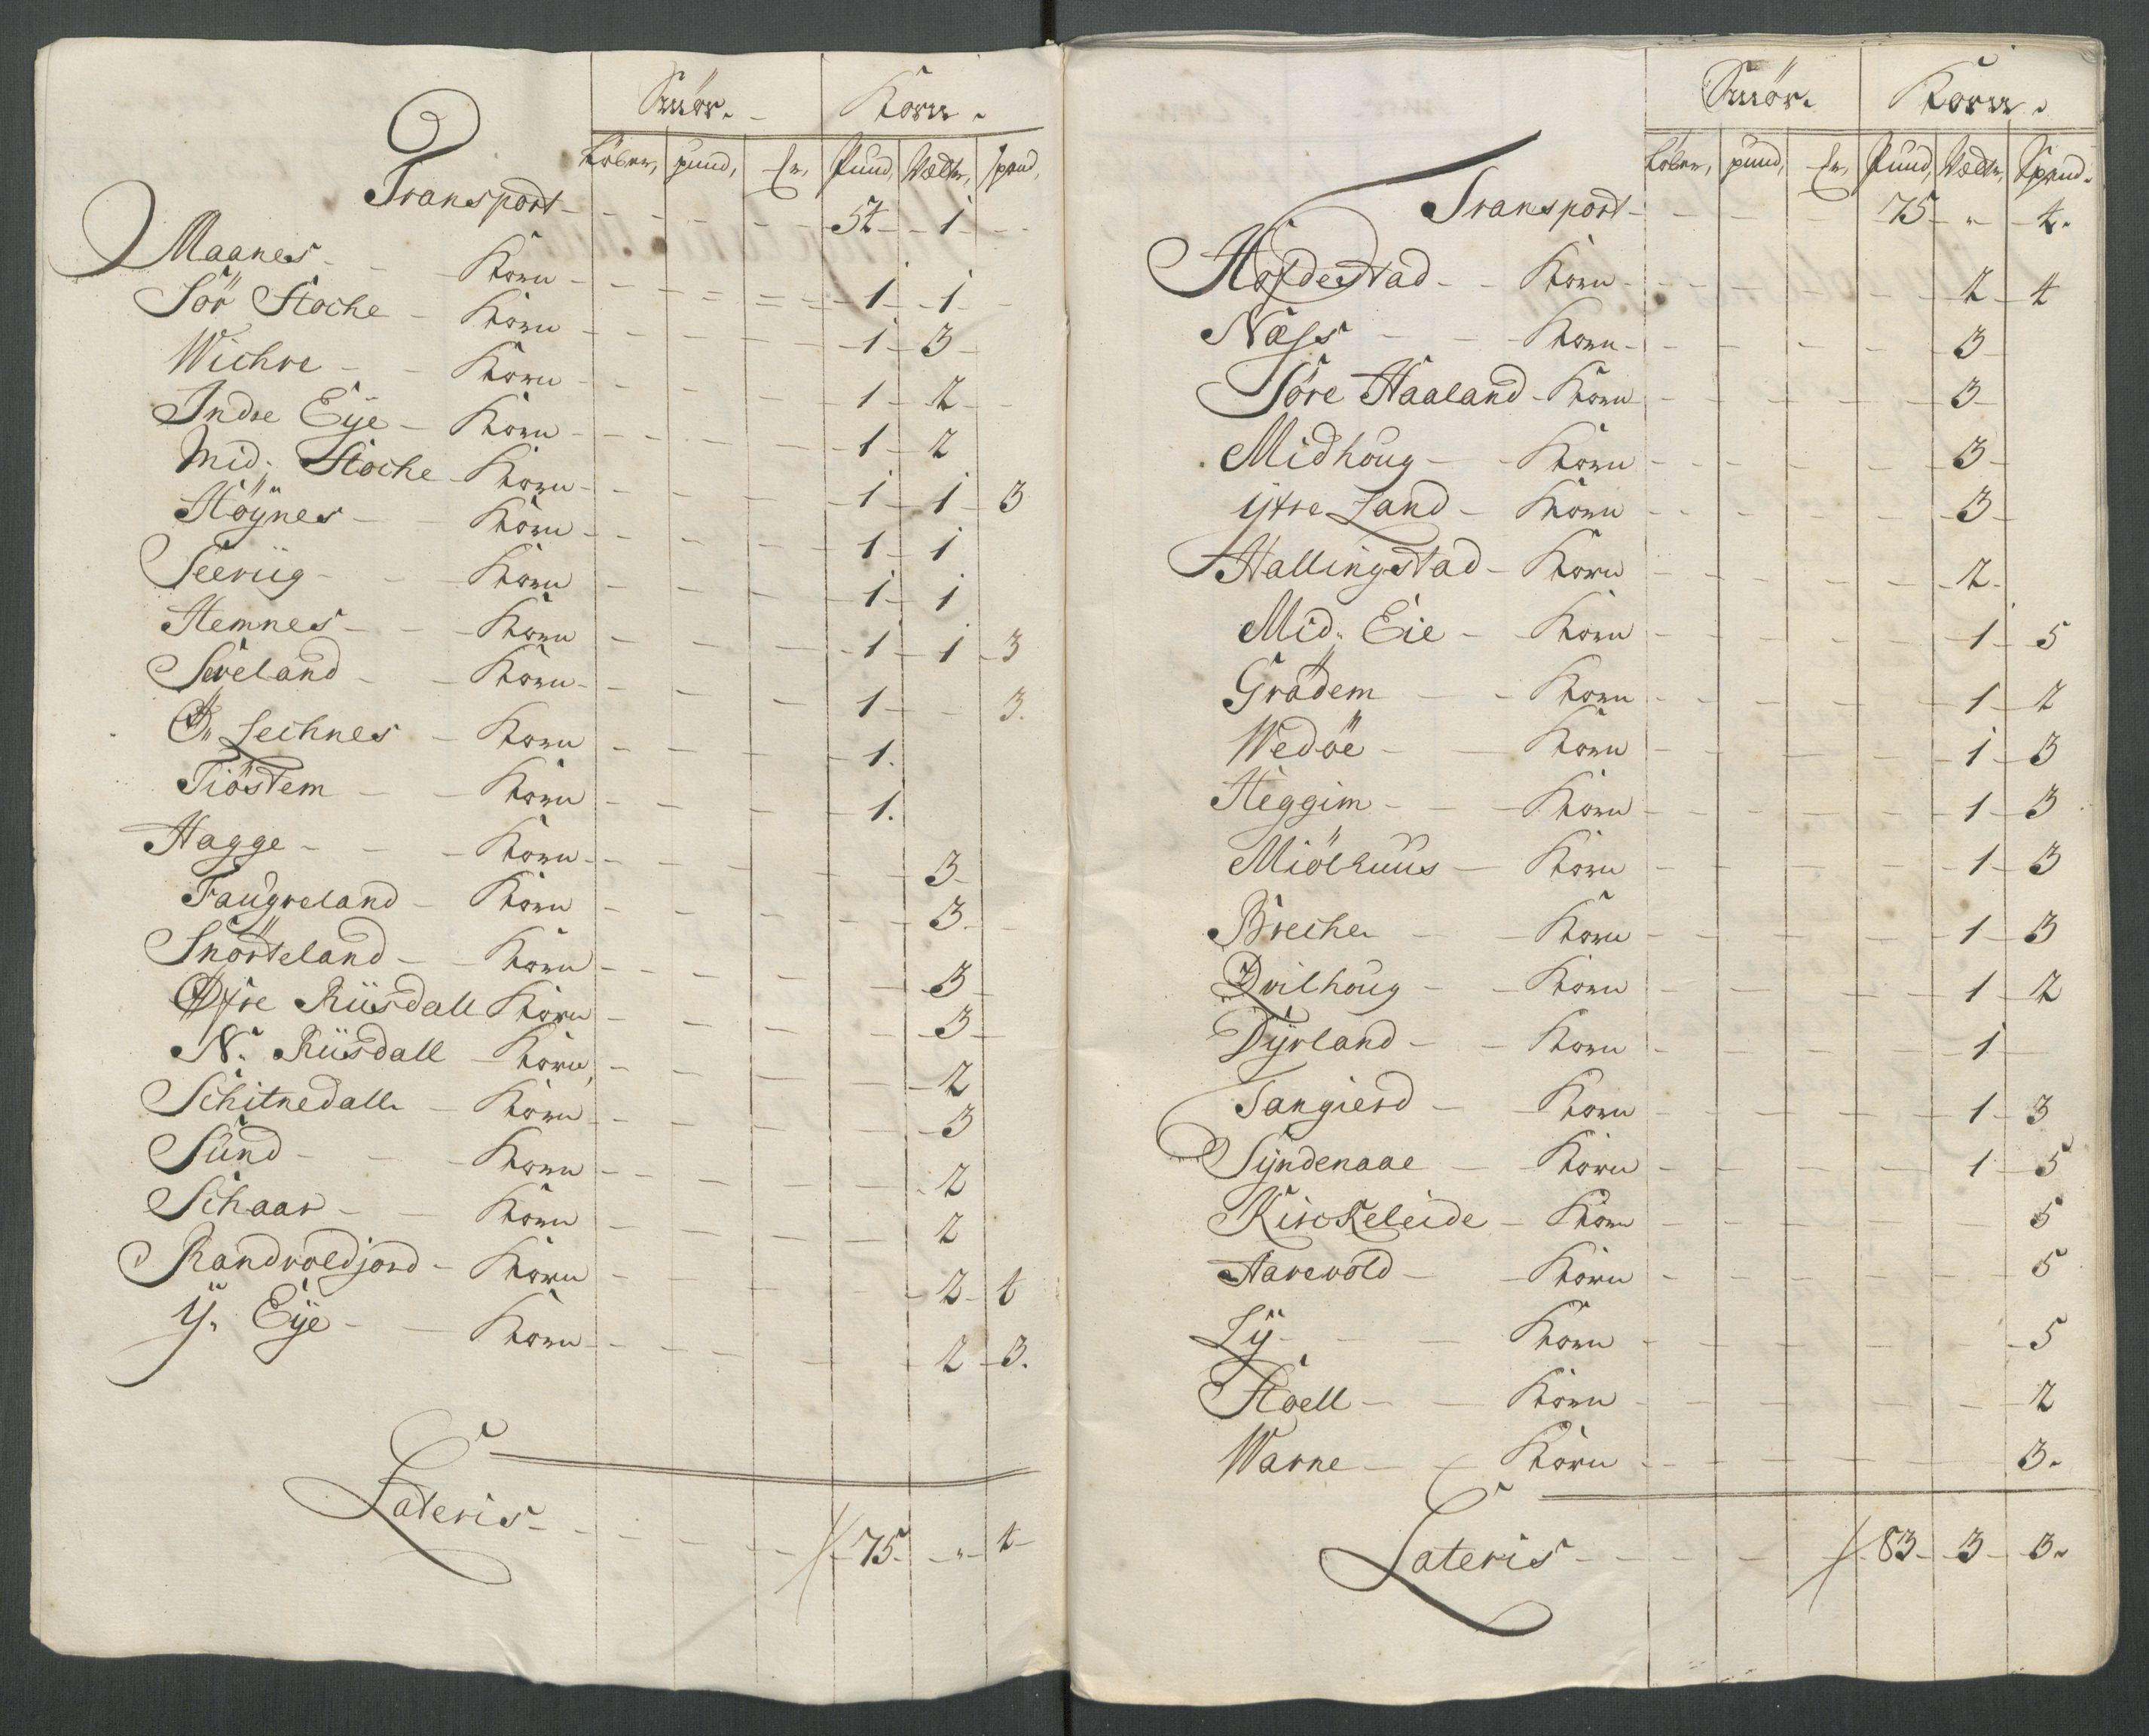 Smör. Korn.
Löber, pund, Pund, Wætter, Spand,
Transport 54 1
Maanes Korn 1 1
Sör Stoche Korn 1 3
Wichre Korn 1 2
Indre Eÿe Korn 1 2
Mid: Stoche Korn 1 1 3
Höÿnes Korn 1 1
Seeviig Korn 1 1
Hemnes Korn 1 1 3
Sæveland Korn 1 3.
Ö. Lechnes Korn 1.
Tiöstem Korn 1.
Hagge Korn 3
Faugreland Korn 3.
Snörteland Korn 3
Øfre Riisdall Korn 3
N. Riisdall Korn, 2
Schitnedall Korn 3
Sund Korn 2
Schaar Korn 2
Randvoldjord Korn 2 4
Ÿ. Eÿe Korn 2 3.
Lateris 75 „ 4
Smör. Korn.
Löber, pund, Pund, Wætter, Spand.
Transport 75 „ 4.
Hofdestad Korn 2 4
Næss Korn 3
Söre Haaland Korn 3
Midhoug Korn 3
Ÿtre Land Korn 3
Hallingstad Korn 2
Mid. Eie Korn 1 5
Grödem Korn 1 2
Wedöe Korn 1 3
Heggim Korn 1 3
Miölhuus Korn 1 3
Breche Korn 1 3
Qvilhoug Korn 1 2
Dÿrland Korn 1
Tangierd Korn 1 3
Sÿndenaae Korn 1 5
Kirckeleide Korn 5
Aarevold Korn 5
Lÿ Korn 5
Stoell Korn 2
Warne Korn 3.
Lateris 83 3 3.